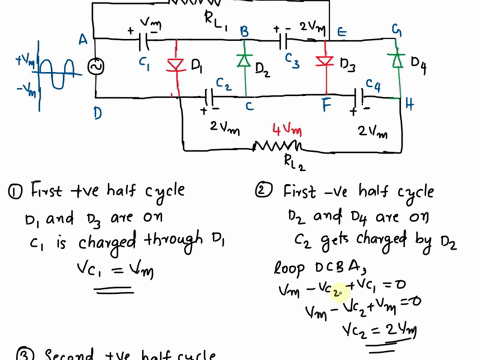 R_L1
+ V_m −
+ − 2V_m
A B E G
C_1 D_1 D_2 C_3 D_3 D_4
+V_m
−V_m
C_2 C_4
D + − C F + − H
2V_m 4V_m 2V_m
R_L2
① First +ve half cycle
D_1 and D_3 are on
C_1 is charged through D_1
V_C1 = V_m
② First −ve half cycle
D_2 and D_4 are on
C_2 gets charged by D_2
loop DCBA,
V_m − V_C2 + V_C1 = 0
V_m − V_C2 + V_m = 0
V_C2 = 2V_m
③ Second +ve half cycle